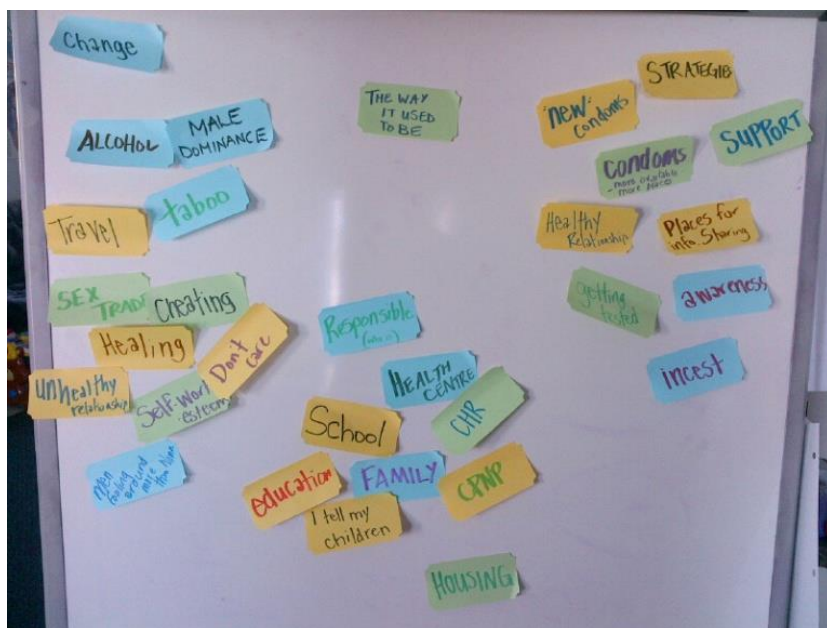 Change
ALCOHOL
MALE
DOMINANCE
Travel
taboo
SEX
TRADE
Cheating
Healing
Don't
care
unhealthy
relationship
Self-Worth
esteem
Men
fooling
around
more
than
THE WAY
IT USED
TO BE
Responsible
HEALTH
CENTRE
School
CHR
education
FAMILY
CPNP
I tell my
children
HOUSING
STRATEGIES
"new"
condoms
SUPPORT
condoms
- more available
more places
Healthy
Relationship
Places for
info. Sharing
getting
tested
awareness
incest